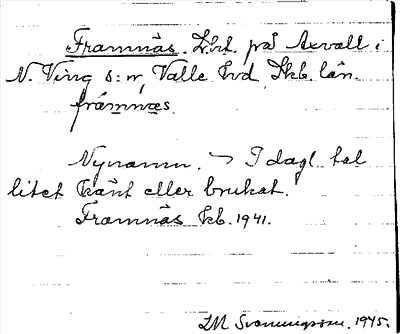 Framnäs. Lht. på Axvall i
N. Ving s:n, Valle hd, Skb. län.
frámnæs.
Nynamn. – I dagl. tal
litet känt eller brukat.
Framnäs Kb. 1941.
LM Svenningsson. 1945.